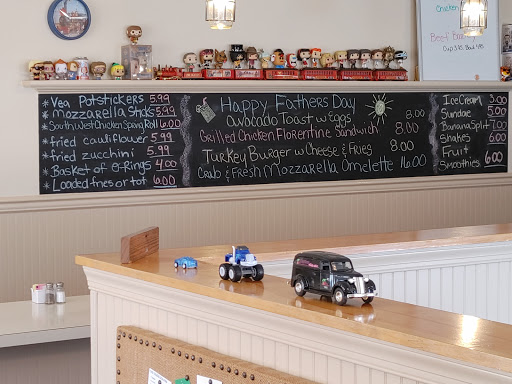 Chicken
Beef Bar
Cup 3.95 Bowl 4.95
* Veg Potstickers 5.99
* mozzarella Sticks 5.99
* South West Chicken Spring Roll 6.00
* fried cauliflower 5.99
* fried zucchini 5.99
* Basket of O-Rings 4.00
* Loaded fries or tot 6.00
Happy Fathers Day
Avocado Toast w Eggs 8.00
Grilled Chicken Florentine Sandwich 8.00
Turkey Burger w Cheese & Fries 8.00
Crab & Fresh Mozzarella Omelette 16.00
Ice Cream 3.00
Sundae 5.00
Banana Split 7.00
Shakes 6.00
Fruit
Smoothies 6.00